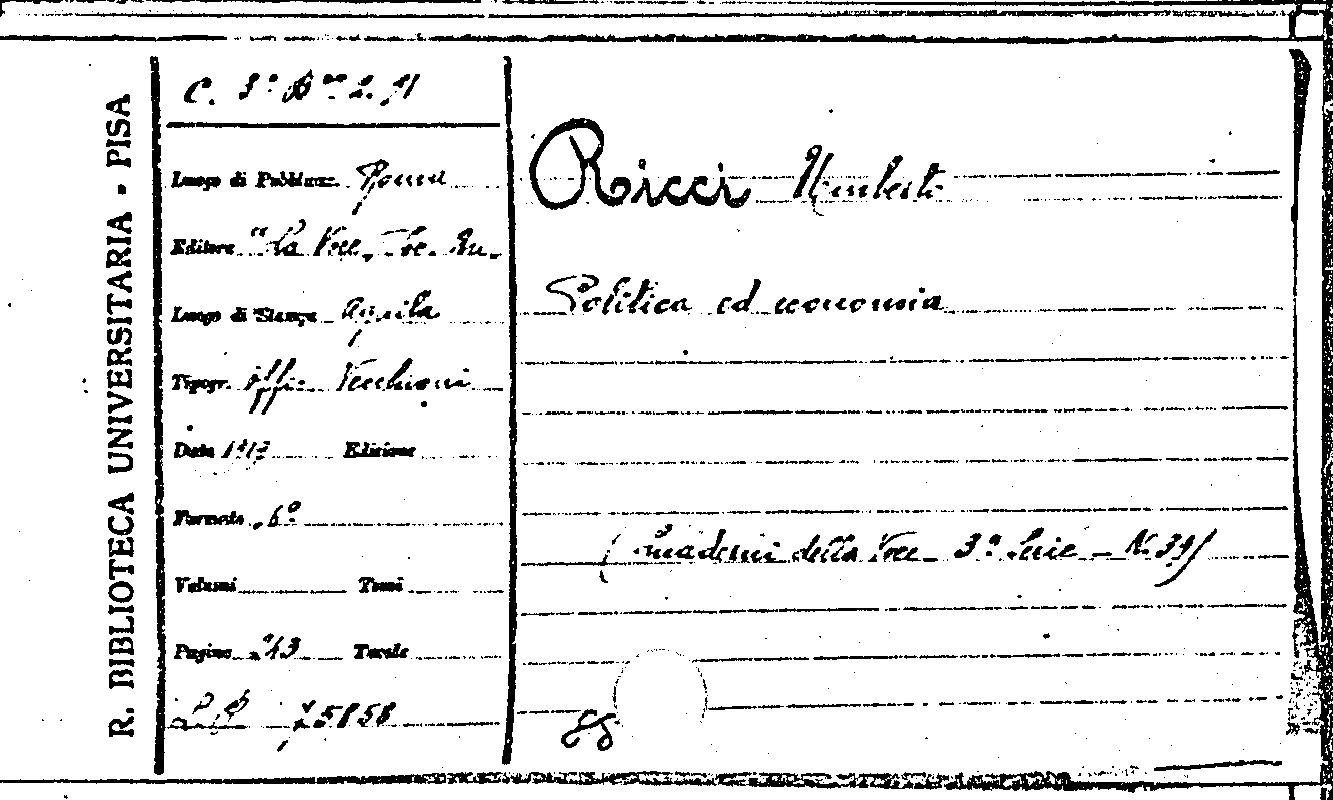 R. BIBLIOTECA UNIVERSITARIA - PISA
Luogo di Pubblicaz. Roma
Editore "La Voce" Soc. An.
Luogo di Stampa Aquila
Tipogr. Offic. Vecchioni
Data Edizione
Formato
Volumi Tomi
Pagine Tavole
75858
Ricci Umberto
Politica ed economia
(Quaderni della Voce - 3ª Serie - N. 39)